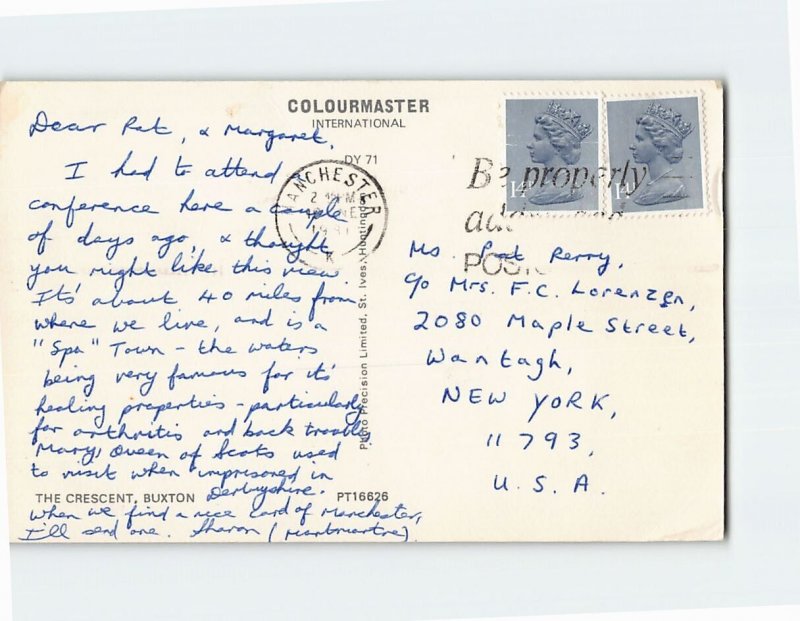 COLOURMASTER
INTERNATIONAL
DY 71
Dear Pat, & Margaret,
I had to attend
conference here a couple
of days ago, & thought
you might like this view.
It's about 40 miles from
where we live, and is a
"Spa" Town - the waters
being very famous for it's
healing properties - particularly
for arthritis and back trouble.
Mary, Queen of Scots used
to visit when imprisoned in
Derbyshire.
When we find a nice card of Manchester,
I'll send one. Sharon (Montmartre)
THE CRESCENT, BUXTON
PT16626
Photo Precision Limited, St. Ives, Huntingdon
MANCHESTER
K
Be properly
POST
Ms. Pat Perry,
c/o Mrs. F.C. Lorenzen,
2080 Maple Street,
Wantagh,
NEW YORK,
11793,
U.S.A.